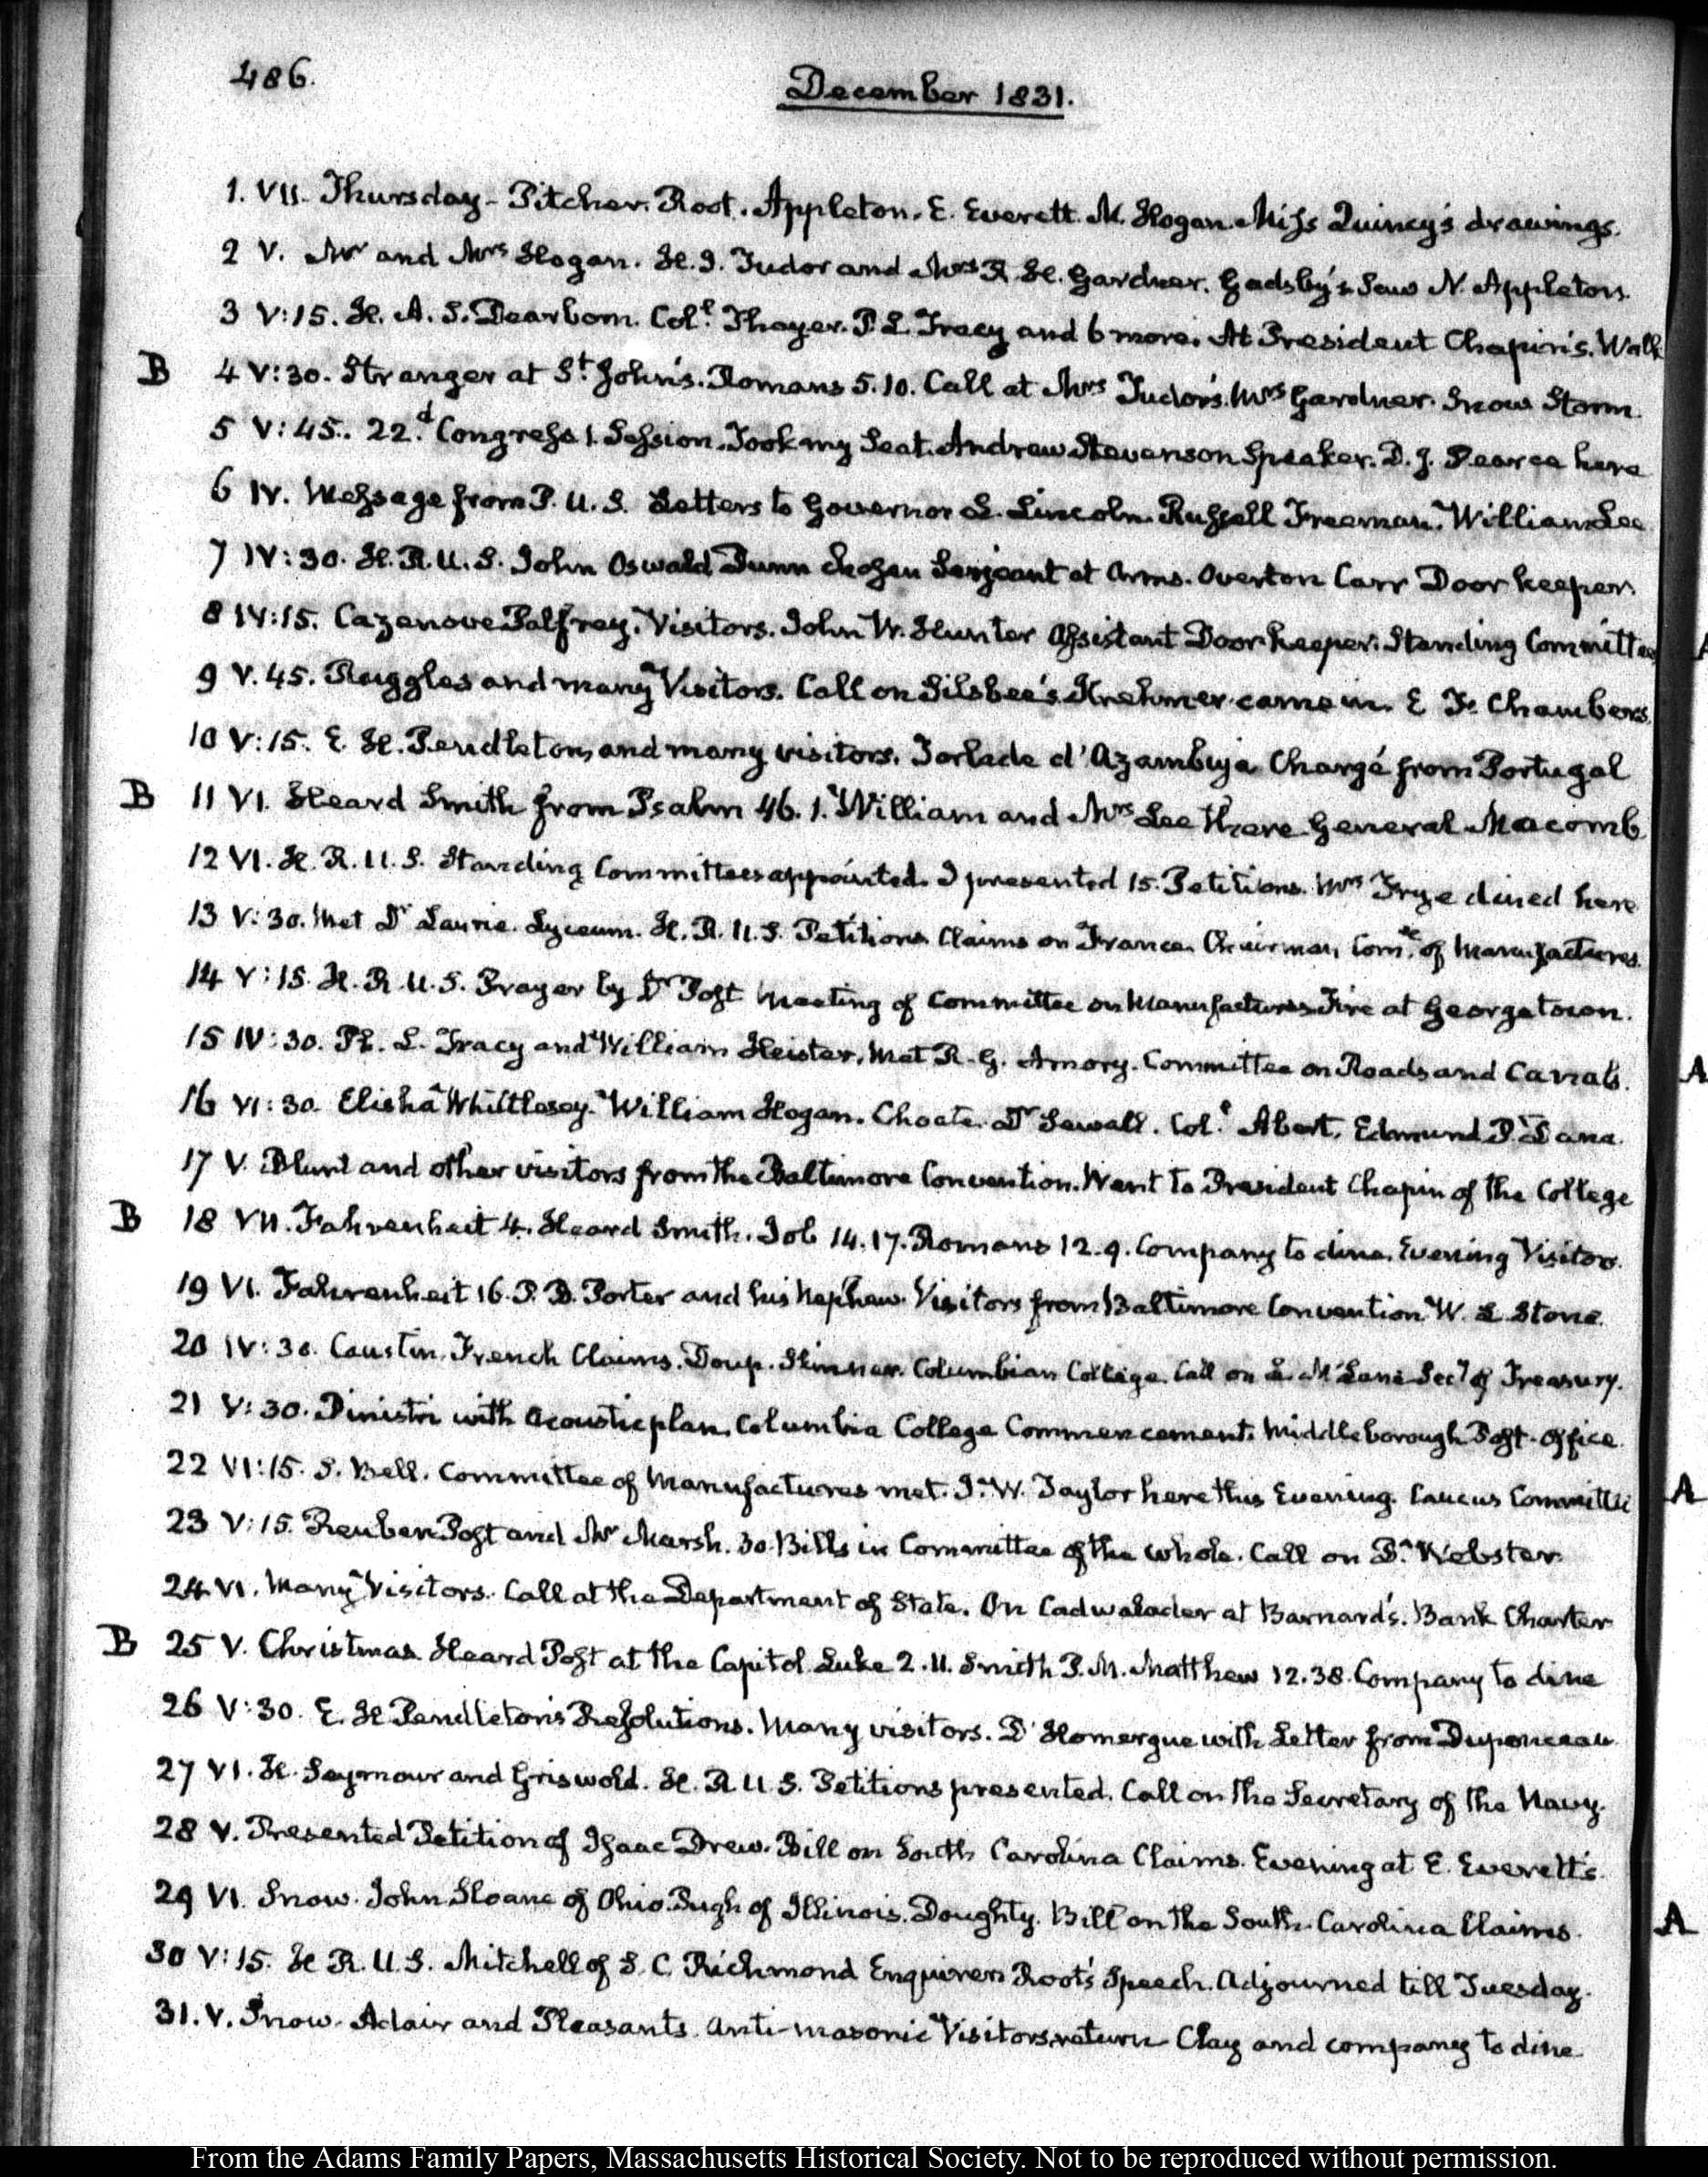 486.
December 1831.
1. VII. Thursday - Pitcher. Root. Appleton. E. Everett. M. Hogan. Miss Quincy's drawings.
2 V. Mr and Mrs Hogan. H. J. Tudor and Mrs R. H. Gardner. Gadsby's. Saw N. Appleton.
3 V:15. H. A. S. Dearborn. Coll. Thayer. P. L. Tracy and 6 more. At President Chapin's. Walk
B 4 V:30. Stranger at St. John's. Romans 5.10. Call at Mrs Tudor's. Mrs Gardner. Snow Storm.
5 V:45. 22.d Congress 1. Session. Took my Seat. Andrew Stevenson Speaker. D. J. Pearce here
6 IV. Message from P. U. S. Letters to Governor L. Lincoln. Russell Freeman. William Lee
7 IV:30. H. R. U. S. John Oswald Dunn chosen Serjeant at Arms. Overton Carr Door keeper.
8 IV:15. Cazenove Palfrey. Visitors. John W. Hunter Assistant Door-keeper. Standing Committees
9 V.45. Ruggles and many Visitors. Call on Silsbee's. Krehmer came in. E. F. Chambers.
10 V:15. E. H. Pendleton, and many visitors. Torlade d'Azambuja Chargé from Portugal
B 11 VI. Heard Smith from Psalm 46.1. William and Mrs Lee there General Macomb
12 VI. H. R. U. S. Standing Committees appointed. I presented 15. Petitions. Mrs Frye dined here
13 V:30. Met Dr Laurie. Lyceum. H. R. U. S. Petitions Claims on France. Chairman, Comee. of Manufactures.
14 V:15. H. R. U. S. Prayer by Dr Post Meeting of Committee on Manufactures Fire at Georgetown.
15 IV:30. Ph. L. Tracy and William Heister. Met R. G. Amory. Committee on Roads and Canals. A
16 VI:30. Elisha Whittlesey. William Hogan. Choate. Dr Sewall. Coll. Abert. Edmund P. Dana.
17 V. Blunt and other visitors from the Baltimore Convention. Went to President Chapin of the College
B 18 VII. Fahrenheit 4. Heard Smith. Job 14.17. Romans 12.9. Company to dine. Evening Visitors.
19 VI. Fahrenheit 16. P. B. Porter and his Nephew. Visitors from Baltimore Convention. W. L. Stone.
20 IV:30. Caustin. French Claims. Doup. Skinner. Columbian College. Call on L. McLane Secy of Treasury.
21 V:30. Dinistri with Acoustic plan. Columbia College Commencement. Middleborough Post-Office.
22 VI:15. S. Bell. Committee of Manufactures met. J. W. Taylor here this Evening. Caucus Committee A
23 V:15. Reuben Post and Mr Marsh. 30. Bills in Committee of the whole. Call on D. Webster.
24 VI. Many Visitors. Call at the Department of State. On Cadwalader at Barnard's. Bank Charter
B 25 V. Christmas. Heard Post at the Capitol. Luke 2.11. Smith P. M. Matthew 12.38. Company to dine
26 V:30. E. H. Pendleton's Resolutions. Many visitors. D'Homergue with Letter from Duponceau
27 VI. H. Seymour and Griswold. H. R. U. S. Petitions presented. Call on the Secretary of the Navy.
28 V. Presented Petition of Isaac Drew. Bill on South Carolina Claims. Evening at E. Everett's.
29 VI. Snow. John Sloane of Ohio. Pugh of Illinois. Doughty. Bill on the South-Carolina Claims. A
30 V:15. H. R. U. S. Mitchell of S. C. Richmond Enquirer. Root's Speech. Adjourned till Tuesday.
31. V. Snow. Adair and Pleasants. Anti-masonic Visitors return Clay and company to dine.
From the Adams Family Papers, Massachusetts Historical Society. Not to be reproduced without permission.